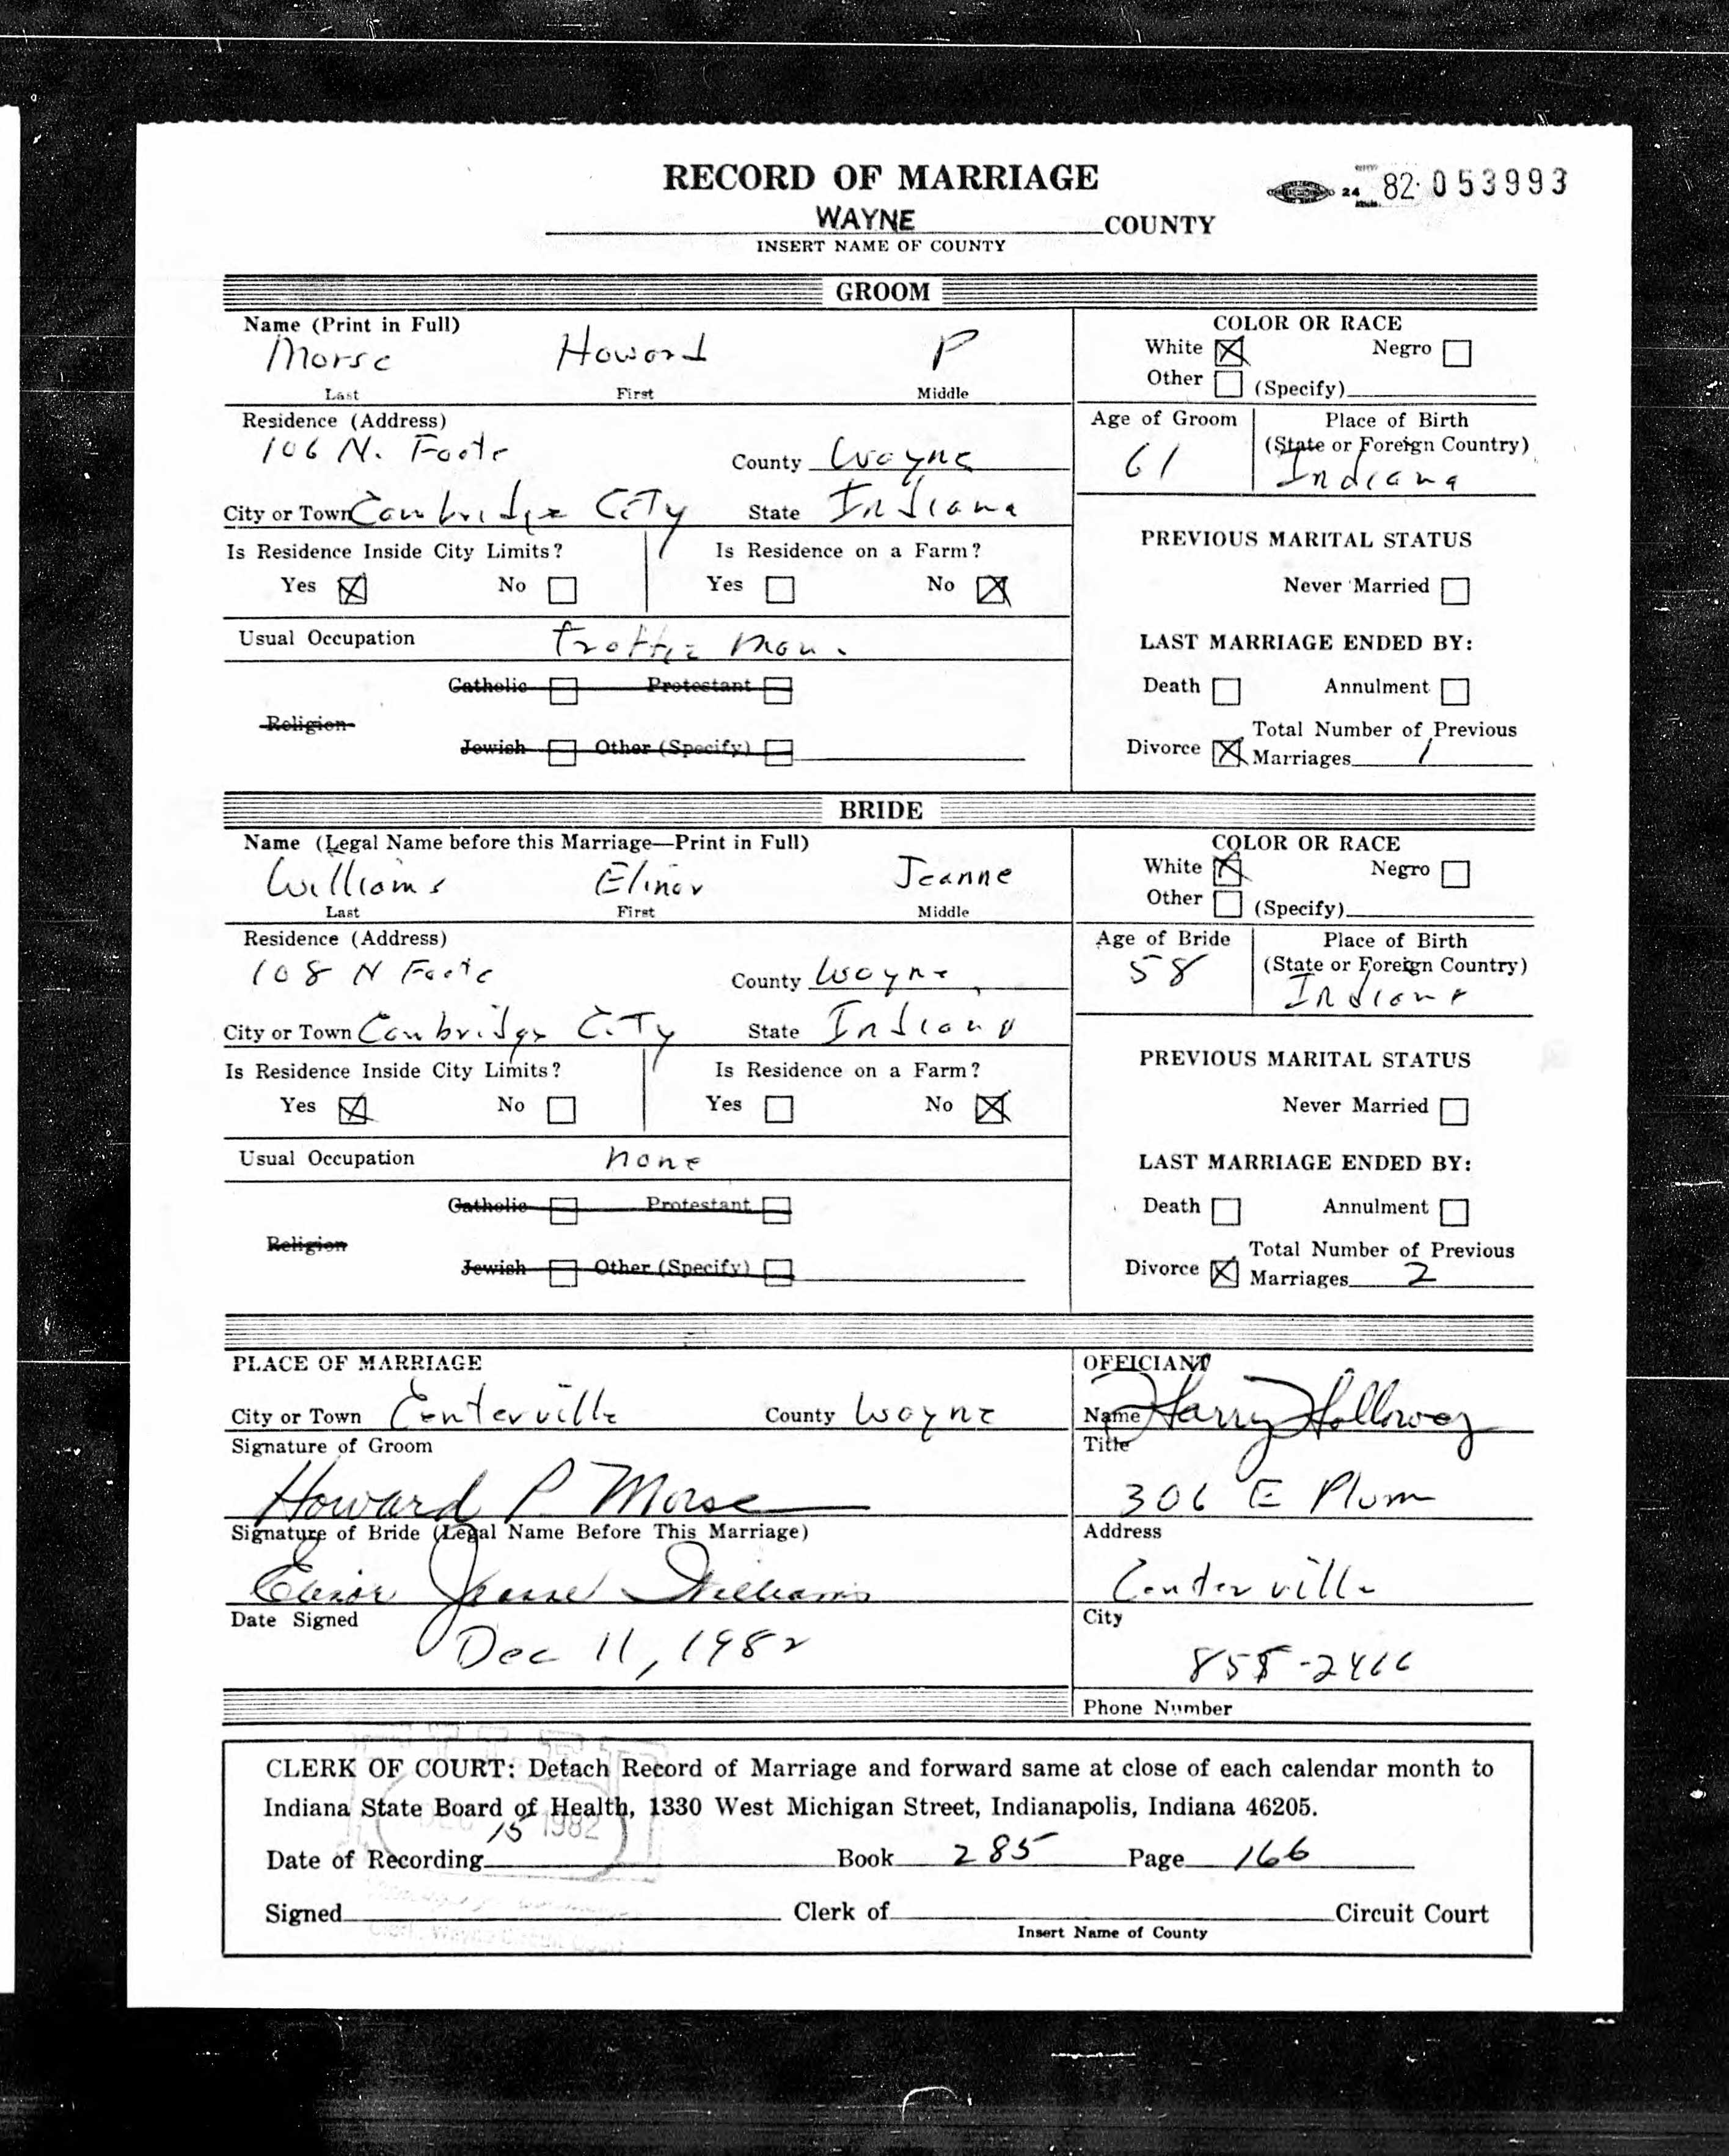 RECORD OF MARRIAGE
24 82 053993
WAYNE COUNTY
INSERT NAME OF COUNTY
GROOM
Name (Print in Full)
Morse Howard P
Last First Middle
COLOR OR RACE
White Negro
Other (Specify)
Residence (Address)
106 N. Foote County Wayne
City or Town Cambridge City State Indiana
Age of Groom
61
Place of Birth
(State or Foreign Country)
Indiana
Is Residence Inside City Limits? Is Residence on a Farm?
Yes No Yes No
PREVIOUS MARITAL STATUS
Never Married
Usual Occupation man
LAST MARRIAGE ENDED BY:
Catholic Protestant
Death Annulment
Religion
Jewish Other (Specify)
Divorce Total Number of Previous
Marriages 1
BRIDE
Name (Legal Name before this Marriage—Print in Full)
Williams Elinor Jeanne
Last First Middle
COLOR OR RACE
White Negro
Other (Specify)
Residence (Address)
108 N Foote County Wayne
City or Town Cambridge City State Indiana
Age of Bride
58
Place of Birth
(State or Foreign Country)
Indiana
Is Residence Inside City Limits? Is Residence on a Farm?
Yes No Yes No
PREVIOUS MARITAL STATUS
Never Married
Usual Occupation none
LAST MARRIAGE ENDED BY:
Catholic Protestant
Death Annulment
Religion
Jewish Other (Specify)
Divorce Total Number of Previous
Marriages 2
PLACE OF MARRIAGE
City or Town Centerville County Wayne
Signature of Groom
Howard P Morse
Signature of Bride (Legal Name Before This Marriage)
Elinor Jeanne Williams
Date Signed
Dec 11, 1982
OFFICIANT
Name Harry Holloway
Title
306 E Plum
Address
Centerville
City
855-2466
Phone Number
CLERK OF COURT: Detach Record of Marriage and forward same at close of each calendar month to
Indiana State Board of Health, 1330 West Michigan Street, Indianapolis, Indiana 46205.
DEC 15 1982
Date of Recording Book 285 Page 166
Signed Clerk of Circuit Court
Insert Name of County
Clerk, Wayne Circuit Court